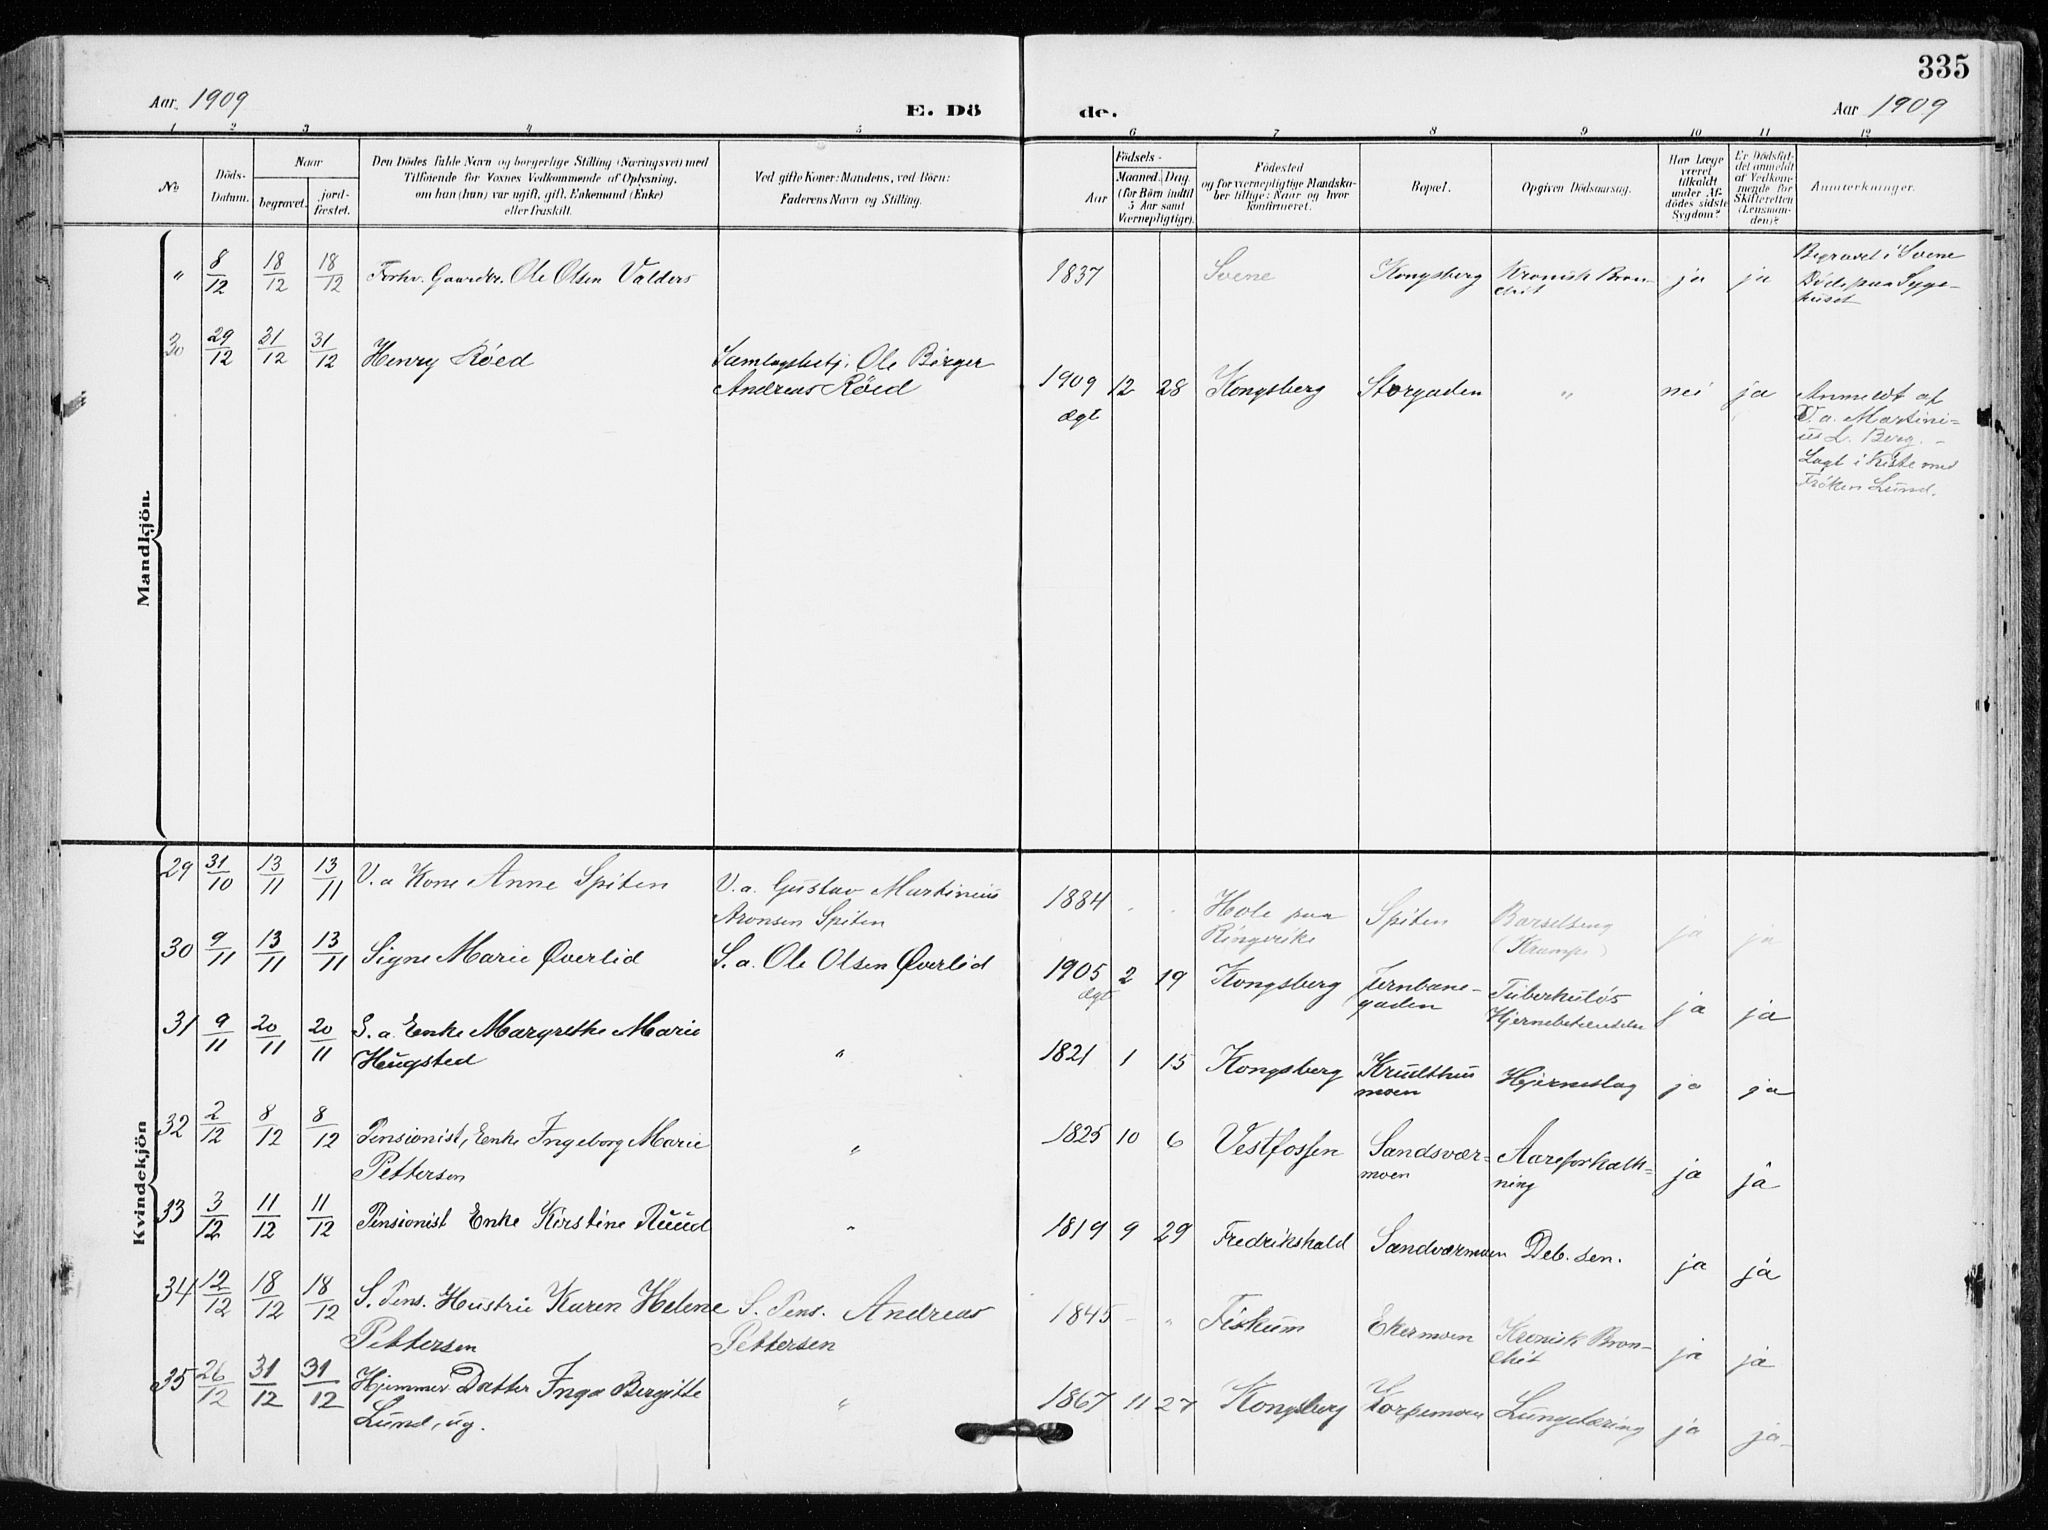 335
Aar 1909
E. Dö
de.
Aar 1909
1 2 3 4 5 6 7 8 9 10 11 12
No
Döds-
Datum.
Naar
begravet.
jord-
fæstet.
Den Dödes fulde Navn og borgerlige Stilling (Næringsvei) med
Tilföiende for Voxnes Vedkommende af Oplysning,
om han (hun) var ugift, gift, Enkemand (Enke)
eller fraskilt.
Ved gifte Koner: Mandens, ved Börn:
Faderens Navn og Stilling.
Aar
Födsels-
Maaned. Dag.
(for Börn indtil
5 Aar samt
Værnepligtige).
Födested
og for værnepligtige Mandska-
ber tillige: Naar og hvor
konfirmeret.
Bopæl.
Opgiven Dödsaarsag.
Har Læge
været
tilkaldt
under Af-
dödes sidste
Sygdom?
Er Dödsfal-
det anmeldt
af Vedkom-
mende for
Skifteretten
(Lensman-
den)?
Anmerkninger.
Mandkjön
" 8/12 18/12 18/12 Forhv. Gaardbr. Ole Olsen Valders 1837 Svene Kongsberg Kronisk Bron-
chit ja ja Begravet i Svene
Döde paa Syge-
huset
30 29/12 31/12 31/12 Henry Röed Samlagsbestj. Ole Börger
Andreas Röed 1909 12 28 Kongsberg Storgaden " nei ja
ægt
Anmeldt af
V. a. Martini-
us L. Berg. -
Lagt i Kiste med
Fröken Lund.
Kvindekjön
29 31/10 13/11 13/11 V. a Kone Anne Spiten V. a. Gustav Martinius
Aronsen Spiten 1884 . . Hole paa
Ringerike Spiten Barselseng
(Krampe) ja ja
30 9/11 13/11 13/11 Signe Marie Øverlid S. a. Ole Olsen Øverlid 1905 2 19 Kongsberg Jernbane-
gaden Tuberkulös
Hjernebetændelse ja ja
ægt
31 9/11 20/11 20/11 S. a. Enke Margrethe Marie
Haugsted " 1821 1 15 Kongsberg Krutthus
moen Hjerneslag ja ja
32 2/12 8/12 8/12 Pensionist, Enke Ingeborg Marie
Pettersen " 1825 10 6 Vestfossen Sandsvær-
moen Aareforkalk-
ning ja ja
33 3/12 11/12 11/12 Pensionist Enke Kirstine Ruud " 1819 9 29 Fredrikshald Sandværmoen Deb. sen. ja ja
34 12/12 18/12 18/12 S. Pens. Hustru Karen Helene
Pettersen S. Pens. Andreas
Pettersen 1845 - " Fiskum Ekermoen Kronisk Bron-
chit ja ja
35 26/12 31/12 31/12 Hjemmev. Datter Inga Bergitte
Lund, ug. " 1867 11 27 Kongsberg Korpemoen Lungetæring ja ja